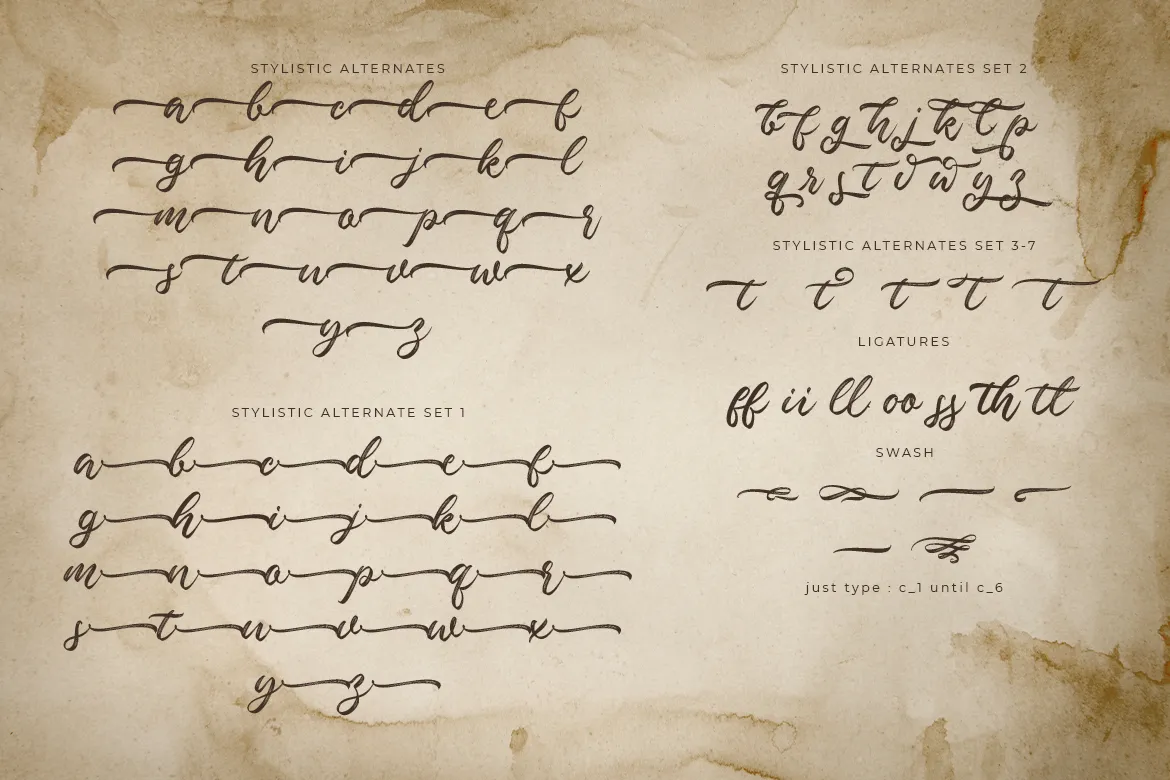 STYLISTIC ALTERNATES
a b c d e f
g h i j k l
m n o p q r
s t u v w x
y z
STYLISTIC ALTERNATE SET 1
a b c d e f
g h i j k l
m n o p q r
s t u v w x
y z
STYLISTIC ALTERNATES SET 2
b f g h j k l p
q r s t v w y z
STYLISTIC ALTERNATES SET 3-7
t t t t t
LIGATURES
ff ii ll oo ss th tt
SWASH
just type : c_1 until c_6